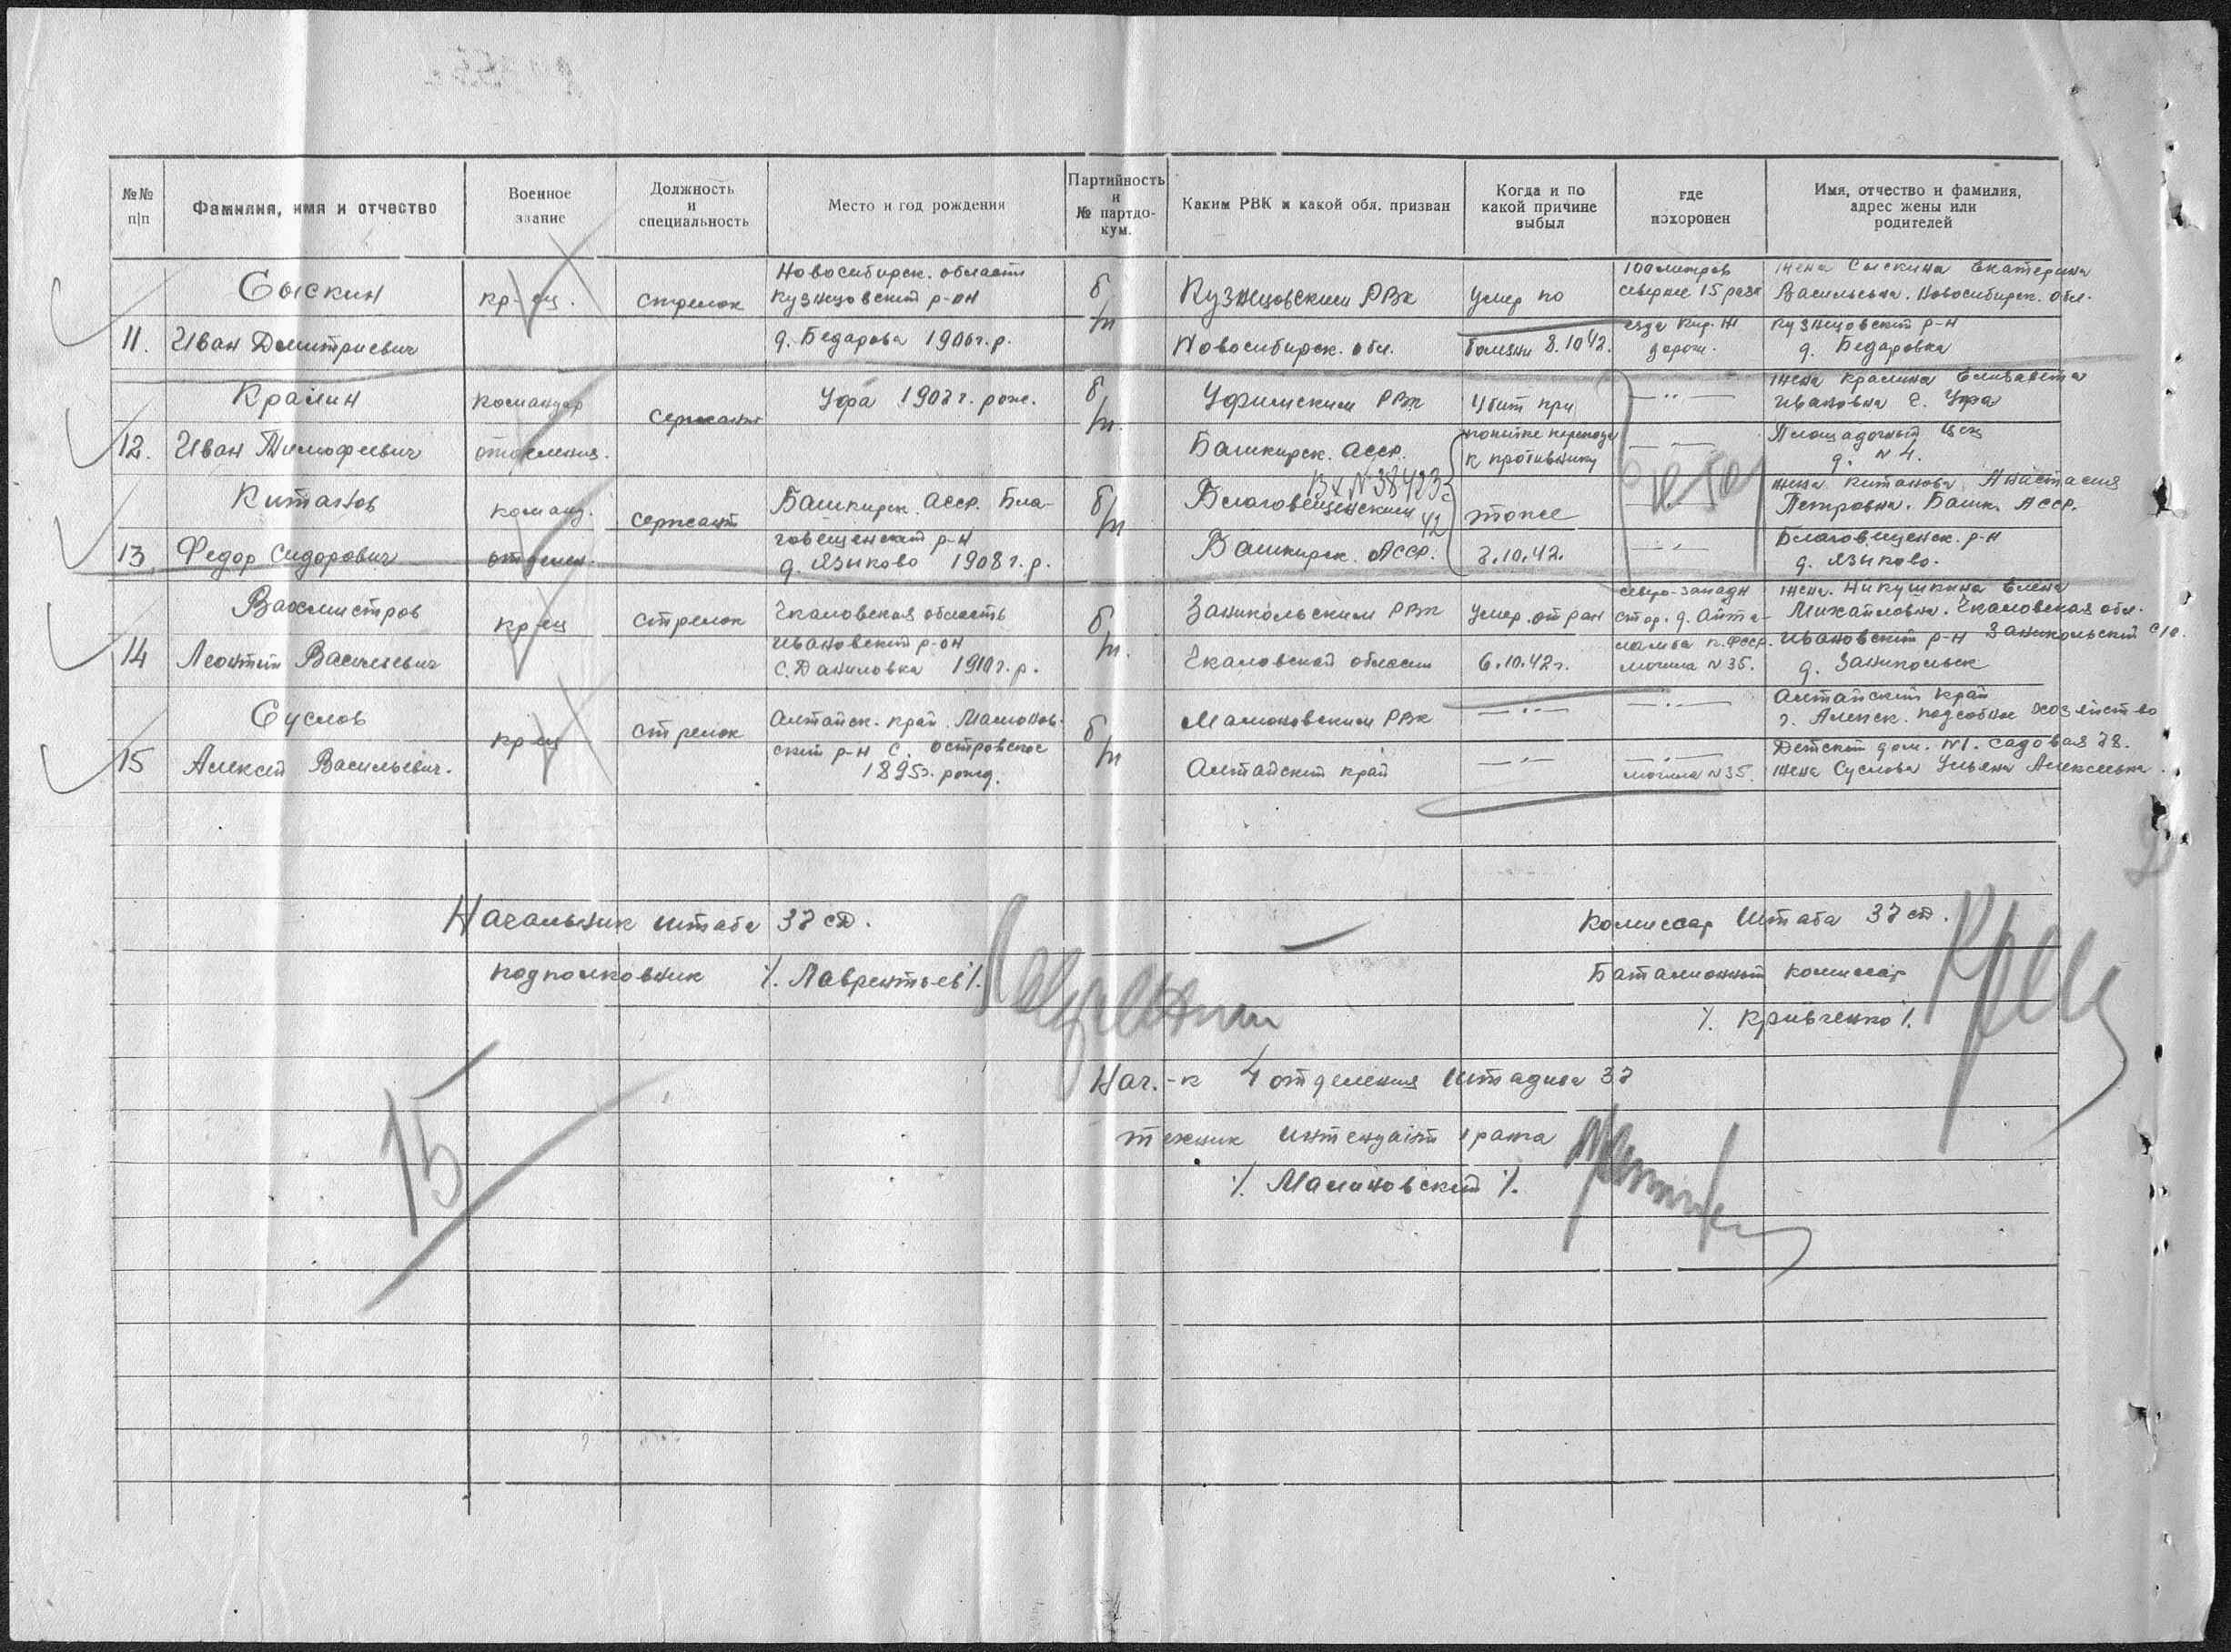 №№ п|п
Фамилия, имя и отчество
Военное звание
Должность и специальность
Место и год рождения
Партийность и № партдокум.
Каким РВК и какой обл. призван
Когда и по какой причине выбыл
где похоронен
Имя, отчество и фамилия, адрес жены или родителей
11.
Сыскин
Иван Дмитриевич
кр-ец.
стрелок
Новосибирск. области
Кузнецовский р-он
д. Бедарова 1906 г.р.
б/п
Кузнецовским РВк
Новосибирск. обл.
умер по
болезни 8.10 42.
100 метров
севернее 15 разъ
езда Кир. ж
дорог.
жена Сыскина Екатерина
Васильевна. Новосибирск. обл.
Кузнецовский р-н
д. Бедаровка
12.
Кралин
Иван Тимофеевич
командир
отделения.
сержант
Уфа 1907 г. рож.
б/п.
Уфимским РВк
Башкирск. АССР.
Убит при
попытке перехода
к противнику
— ,, —
— ,, —
жена Кралина Елизавета
Ивановна г. Уфа
Площадочный цех
д. № 4.
13.
Китанов
Федор Сидорович
команд.
отделен.
сержант
Башкирск. АССР. Бла-
говещенский р-н
д. Языково 1908 г.р.
б/п
Вх №38423
42
Благовещенским
Башкирск. АССР.
тоже
7.10.42.
— ,, —
жена Китанова Анастасия
Петровна. Башк. АССР.
Благовещенск. р-н
д. Языково.
14
Вахмистров
Леонтий Васильевич
кр-ец
стрелок
Чкаловская область
Ивановский р-он
с. Даниловка 1910 г.р.
б/п.
Заникольским РВк
Чкаловской области
умер от ран
6.10.42 г.
северо-западн
стор. д. Айта-
ламба К.ФССР.
могила №35.
жена. Никушкина Елена
Михайловна. Чкаловская обл.
Ивановский р-н Заникольский с/с.
д. Заникольск
15
Суслов
Алексей Васильевич.
кр-ец
стрелок
Алтайск. край. Мамонтов-
ский р-н с. Островское
1895 г. рожд.
б/п
Мамоновским РВк
Алтайский край
— ,, —
— ,, —
— ,, —
— ,, —
могила №35.
Алтайский край
г. Алейск. подсобное хозяйство
Детский дом. №1. Садовая 78.
жена Суслова Ульяна Алексеевна
Начальник штаба 37 сд.
подполковник /. Лаврентьев/.
Комиссар штаба 37 сд.
Батальонный комиссар
/. Кривченко /.
Нач.-к 4 отделения штадива 37
техник интендант 1 ранга
/. Малиновский /.
15